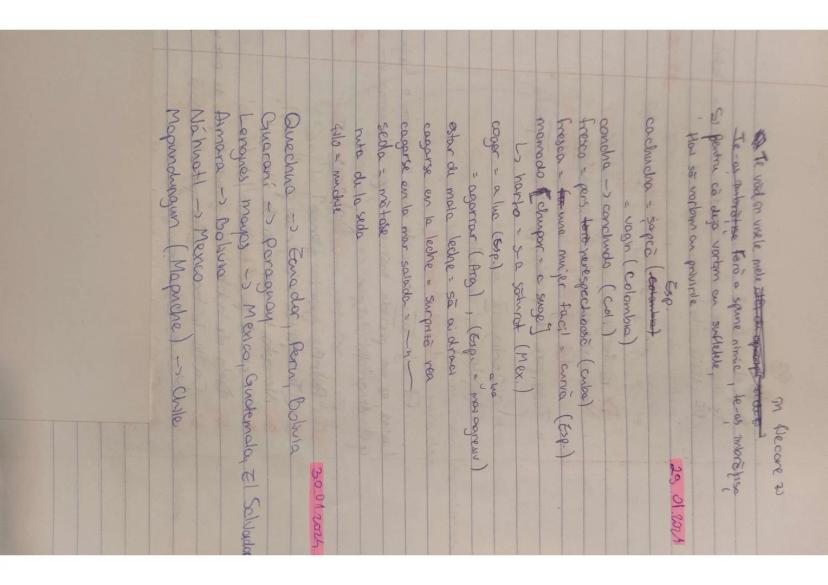 Te văd în visele mele
Te-aș îmbrățișa fără a spune nimic, te-aș îmbrățișa
Și pentru că deja vorbim cu sufletele,
Hai să vorbim cu privirile
29.01.2024
cachucha = șapcă (Esp.
= vagin (Colombia)
concha → conchudo (Col.)
fresca = pers perespectuoasă (Cuba)
fresca = una mujer facil = curvă (Esp.)
mamado [chupar = a suge]
↳ harto = s-a săturat (Mex.)
coger = a lua (Esp.)
= agarrar (Arg.), (Esp. = a lua mai agresiv)
estar de mala leche = să ai draci
cagarse en la leche = surpriză rea
cagarse en la mar salada = —"—
seda = mătase
ruta de la seda
filo = muchie
30.01.2024
Quechua → Ecuador, Peru, Bolivia
Guaraní → Paraguay
Lengues mayas → Mexico, Guatemala, El Salvador
Aimara → Bolivia
Náhuatl → Mexico
Mapundungun (Mapuche) → Chile